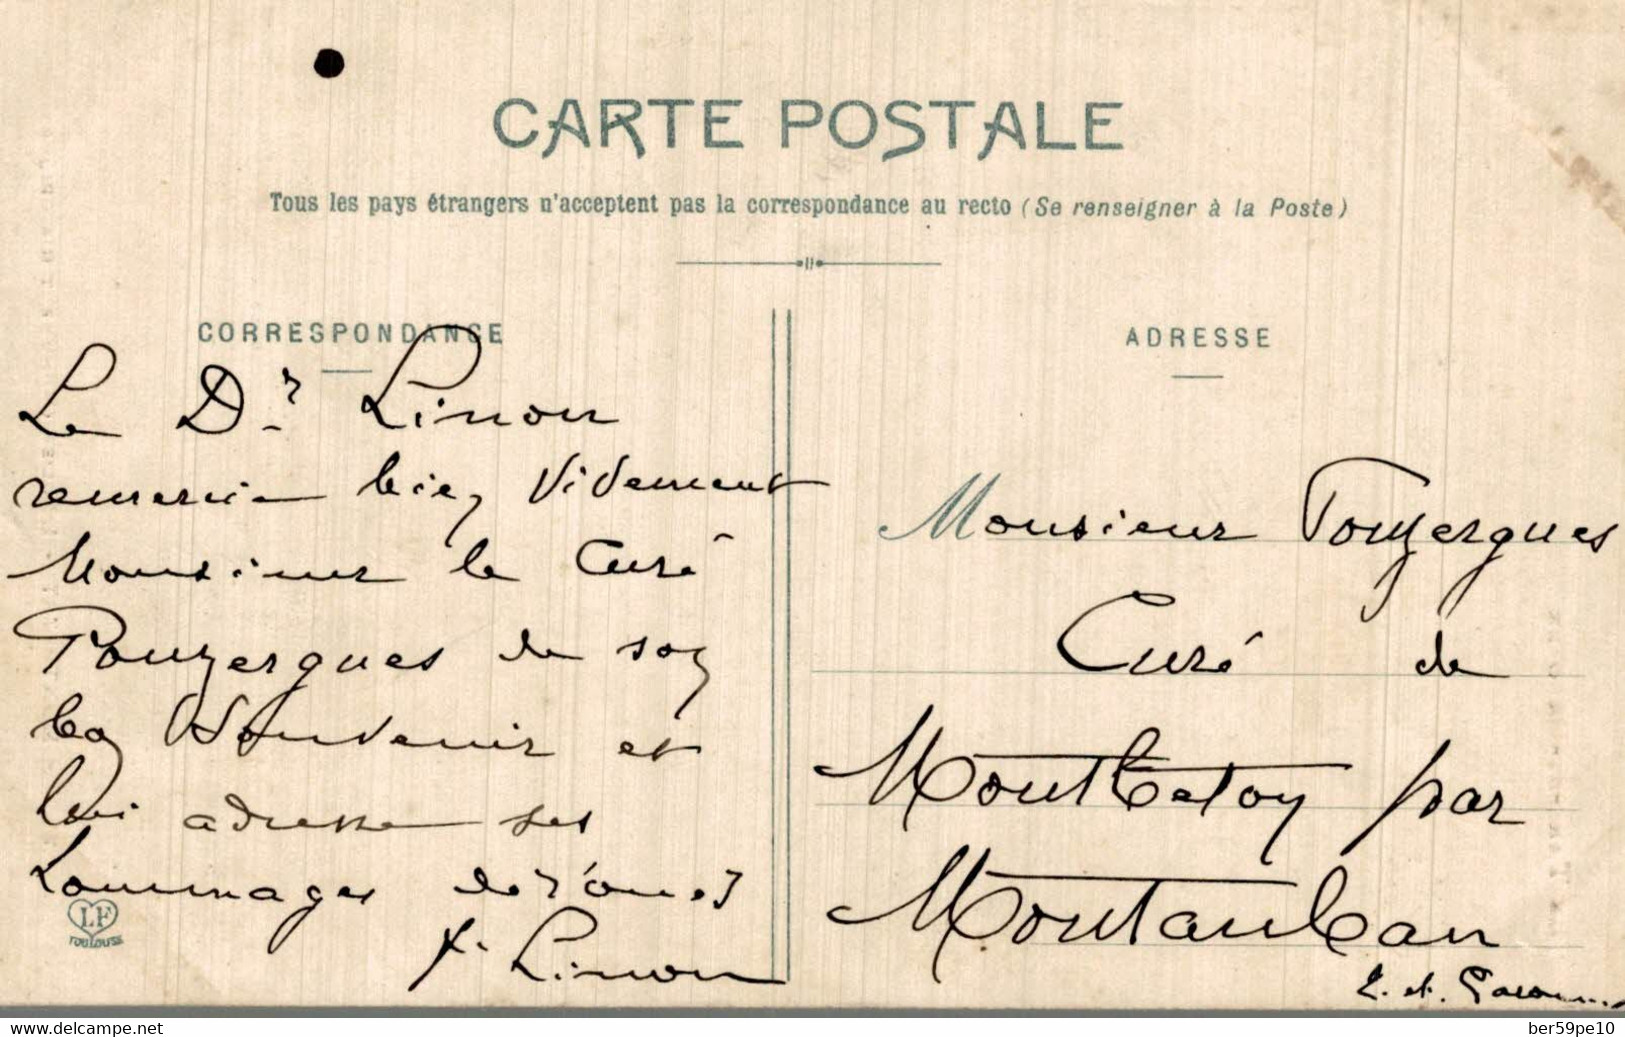 CARTE POSTALE
Tous les pays étrangers n'acceptent pas la correspondance au recto (Se renseigner à la Poste)
CORRESPONDANCE
Le Dr Linon
remercie bien vivement
Monsieur le Curé
Pouzergues de son
bon souvenir et
lui adresse ses
hommages dévoués
Linon
LF
TOULOUSE
ADRESSE
Monsieur Pouzergues
Curé de
Montbeton par
Montauban
T. et Garonne
delcampe.net
ber59pe10